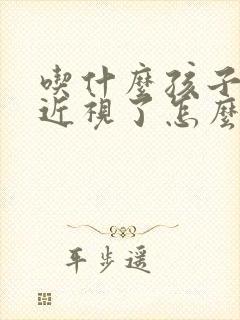 喫什麼孩子
近視了怎麼
平步遥